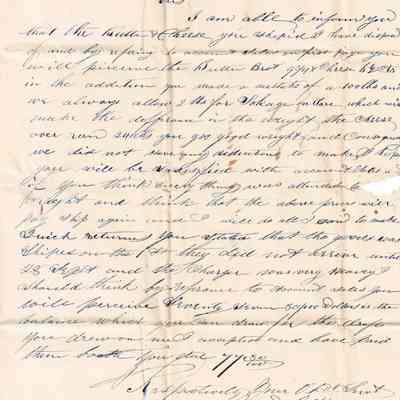 Sir
I am able to inform you
that the Butter & Cheese you shiped I have disposed
of and by refering to account sales on first page you
will perceive the Butter Brot 9 Cheese
in the addition you made a mistake of a 100 lbs and
we always allow 2 lbs for Sokage in Tare which will
make the difference in the weight the Cheese
over run shows you got good weight and Consequently
we did not have any to make I hope
you will be satisfied with account sales and
if you think every thing was attended to
right and think that the above prices will
pay ship again and I will do all I can to make
Quick returns You stated that the goods was
shiped on the 1st they did not arrive until
Sept and the Charges was very heavy I
should think by reference to account sales you
will perceive Seventy Seven Dollars is the
balance which you can draw for the drafts
you drew on me I accepted and have paid
them both You still 77
Respectively Your Obt Servt